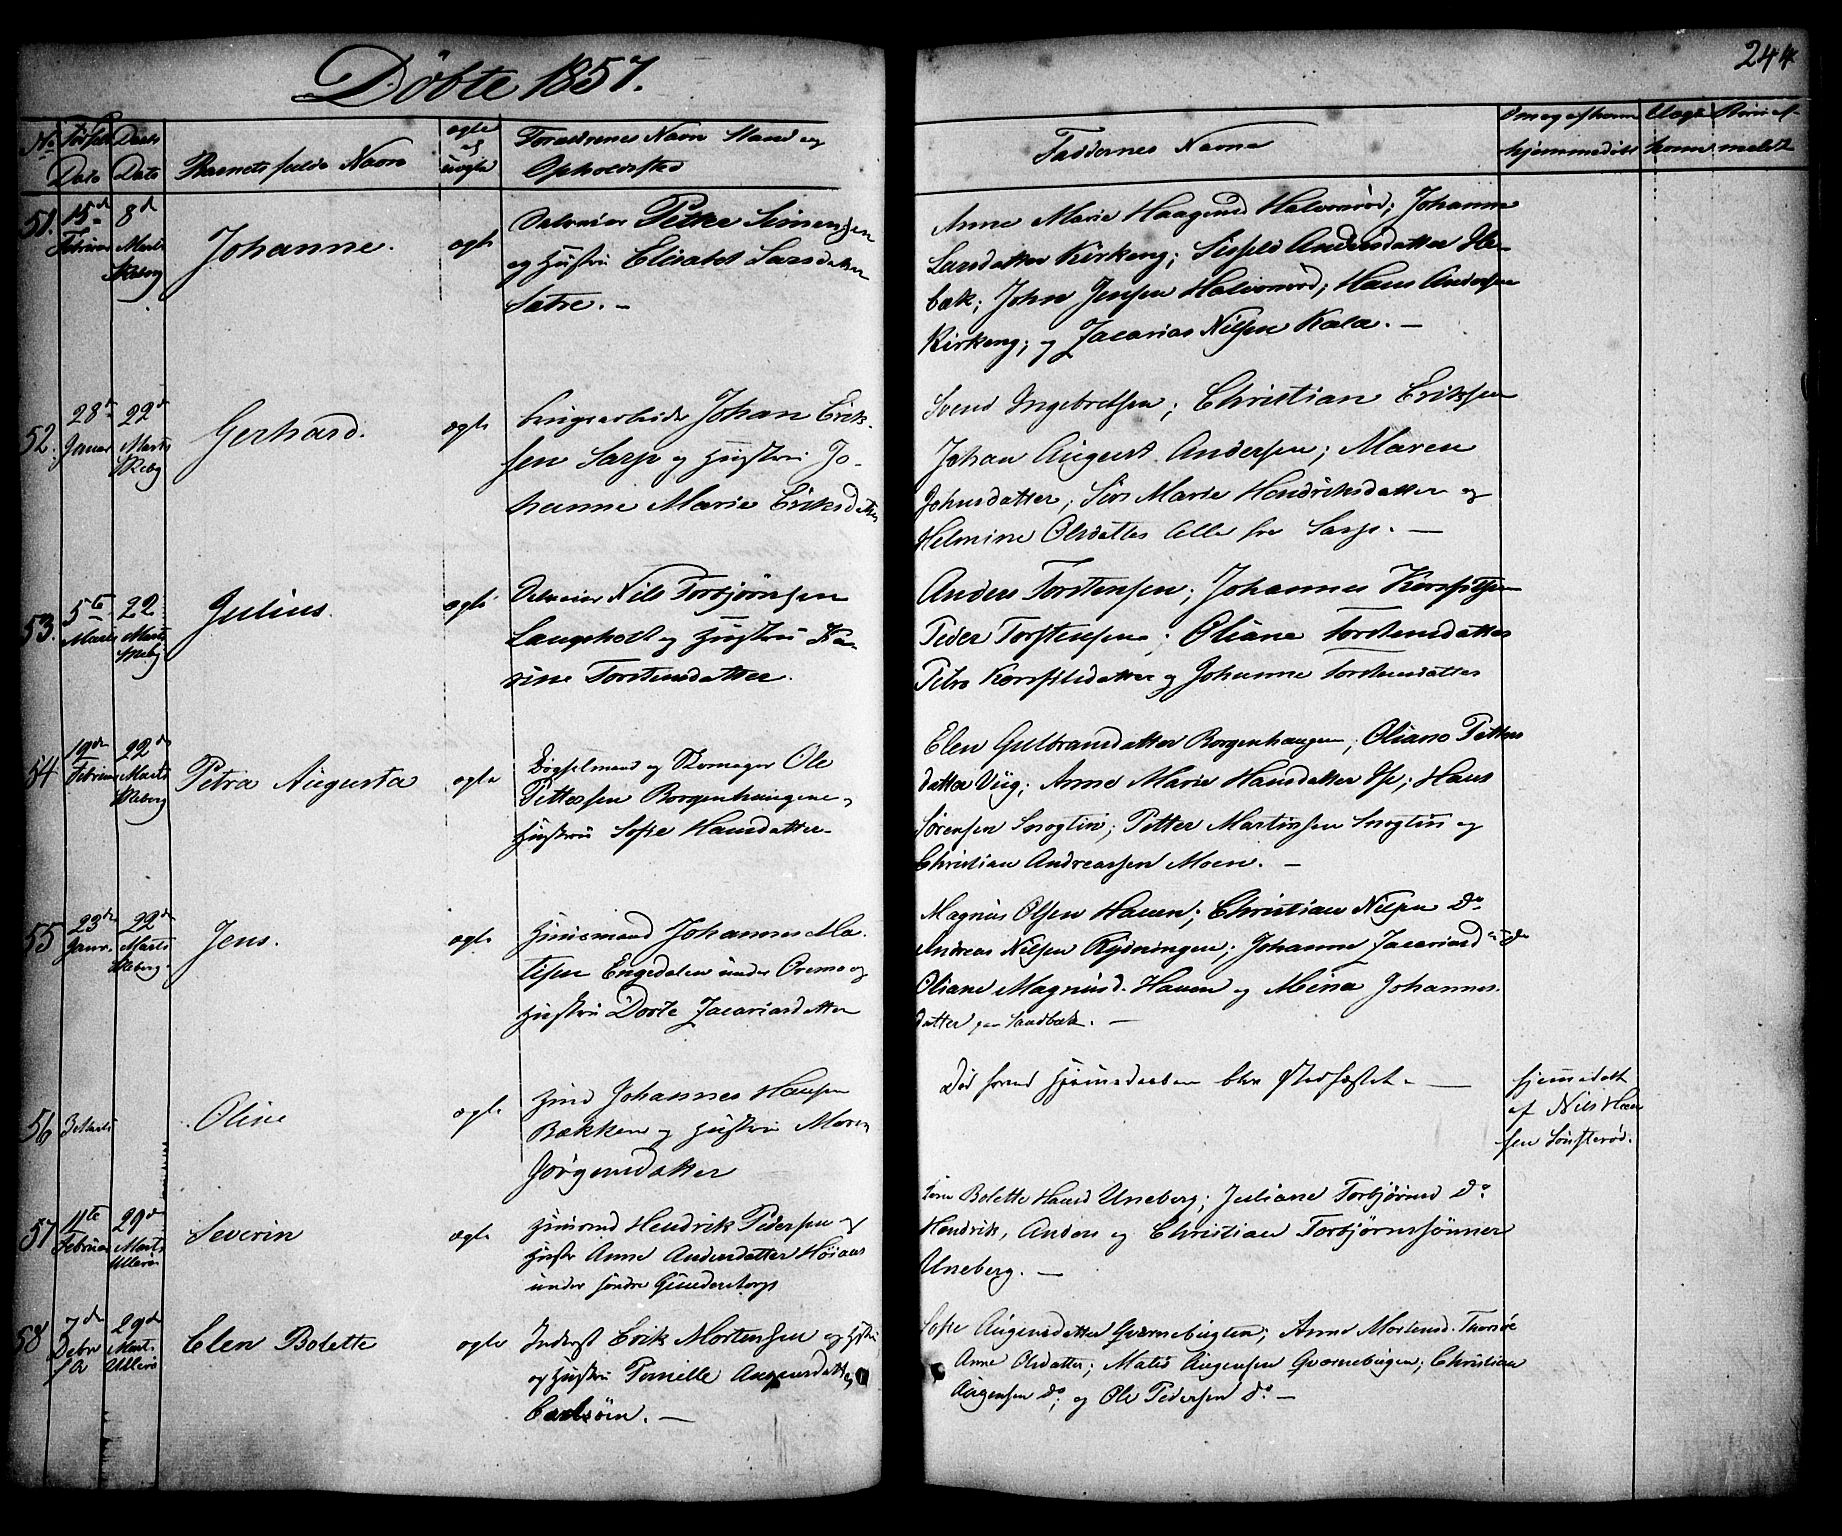 Døbte 1857.
244
No Fødsels Daabs
Date Date
Barnets fulde Navn
ægte
og
uægte
Forældrenes Navn Stand og
Opholdsted
Faddernes Navne
Om og af hvem
hjemmedøbt
51. 15de 8de
Februar Marts
Skeberg
Johanne.
ægte
Selveier Petter Simensen
og Hustru Elisabet Larsdatter
Sætre. —
Anne Marie Haagensd Halvorsrød; Johanne
Larsdatter Kirkeng; Sispele Andersdatter He-
bæk; John Jensen Halvorsrød; Hans Andersen
Kirkeng; og Zacarias Nilsen Kala. —
52. 28de 22de
Januar Marts
Skebg
Gerhard.
ægte
brugsarbeider Johan Erik-
sen Sarp og Hustru Jo-
hanne Marie Eriksdatter
Svend Ingebretsen; Christian Eriksen
Johan August Andersen; Maren
Johnsdatter; Siri Marie Hendriksdatter og
Helmine Olsdatter Alle fra Sarp. —
53. 5te 22
Marts Marts
Skebg
Julius.
ægte
Selveier Nils Torbjørnsen
Langeholt og Hustru Ka-
rine Torstensdatter.
Anders Torstensen; Johannes Kersfitsen
Peder Torstensen; Oliane Torstensdatter
Petra Kersfitsdatter og Johanne Torstensdatter
54 19de 22de
Februar Marts
Skeberg
Petra Augusta
ægte
Bøgselmand og Skomager Ole
Pettersen Borgenhaugene og
Hustru Sofie Hansdatter
Elen Gulbransdatter Borgenhaugen; Oliane Petters
datter Viig; Anne Marie Hansdatter Is; Hans
Sørensen Snogtin; Petter Martinsen Snogtin og
Christian Andreassen Moen. —
55 23de 22de
Janr. Marts
Skeberg
Jens.
ægte
Huusmand Johannes Ma-
tisen Engedalen under Oremo og
Hustru Dorte Zacariasdatter
Magnus Olsen Hauen; Christian Nilsen Do
Andreas Nilsen Rydningen; Johanne Zacariasd Do
Oliane Magnusd. Hauen og Mina Johannes-
datter paa Sandbæk. —
56 3 Marts
Oline
ægte
Huusd Johannes Hansen
Bækken og Hustru Maren
Jørgensdatter
Død forend Hjemedaaben blev stadfæstet. —
hjemedøbt
af Nils Han
sen Sønsterød.
57 11te 29de
Februar Marts
Ullerø
Severin
ægte
Huusmd Hendrik Pedersen og
Hustr Anne Andersdatter Høiaas
under søndre Gundestorp
Bolette Hansd Uneberg; Juliane Torbjørnsd Do
Hendrik, Anders og Christian Torbjørnssønner
Uneberg. —
58 7de 29de
Febr Mart.
Ullerø
Elen Bolette
ægte
Inderst Erik Mortensen og Hustru
og Hustru Pernille Augensdatter
Carlsøen. —
Sofie Augensdatter Qværnebugten; Anne Mortensd. Thorsøe
Anne Olsdatter; Matis Augensen Qværnebugen; Christian
Augensen Do; og Ole Pedersen Do —